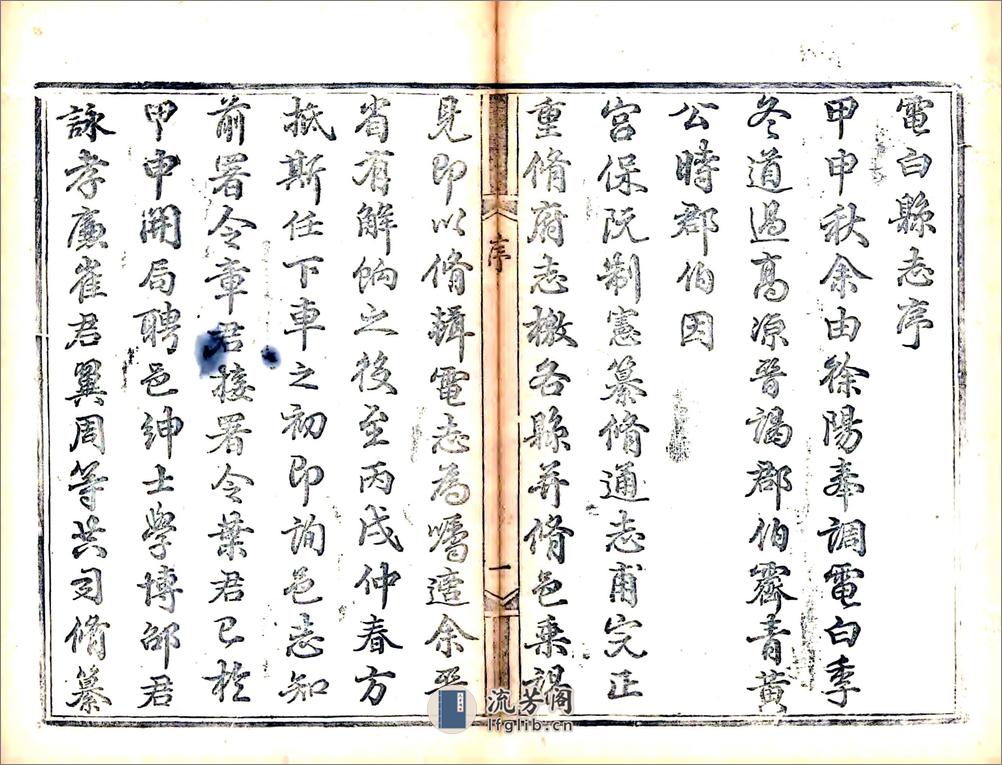 電白縣志序
甲申秋余由徐陽奉調電白季
冬道過高涼晉謁郡伯霽青黃
公時郡伯因
宮保阮制憲纂脩通志甫完正
重脩府志檄各縣并脩邑乘謁
序
一
見即以脩輯電志為囑適余晉
省有解餉之後至丙戌仲春方
抵斯任下車之初即詢邑志知
前署令章君接署令葉君已於
甲申開局聘邑紳士學博邵君
詠孝廉崔君翼周等共司脩纂
流芳阁
lfglib.cn